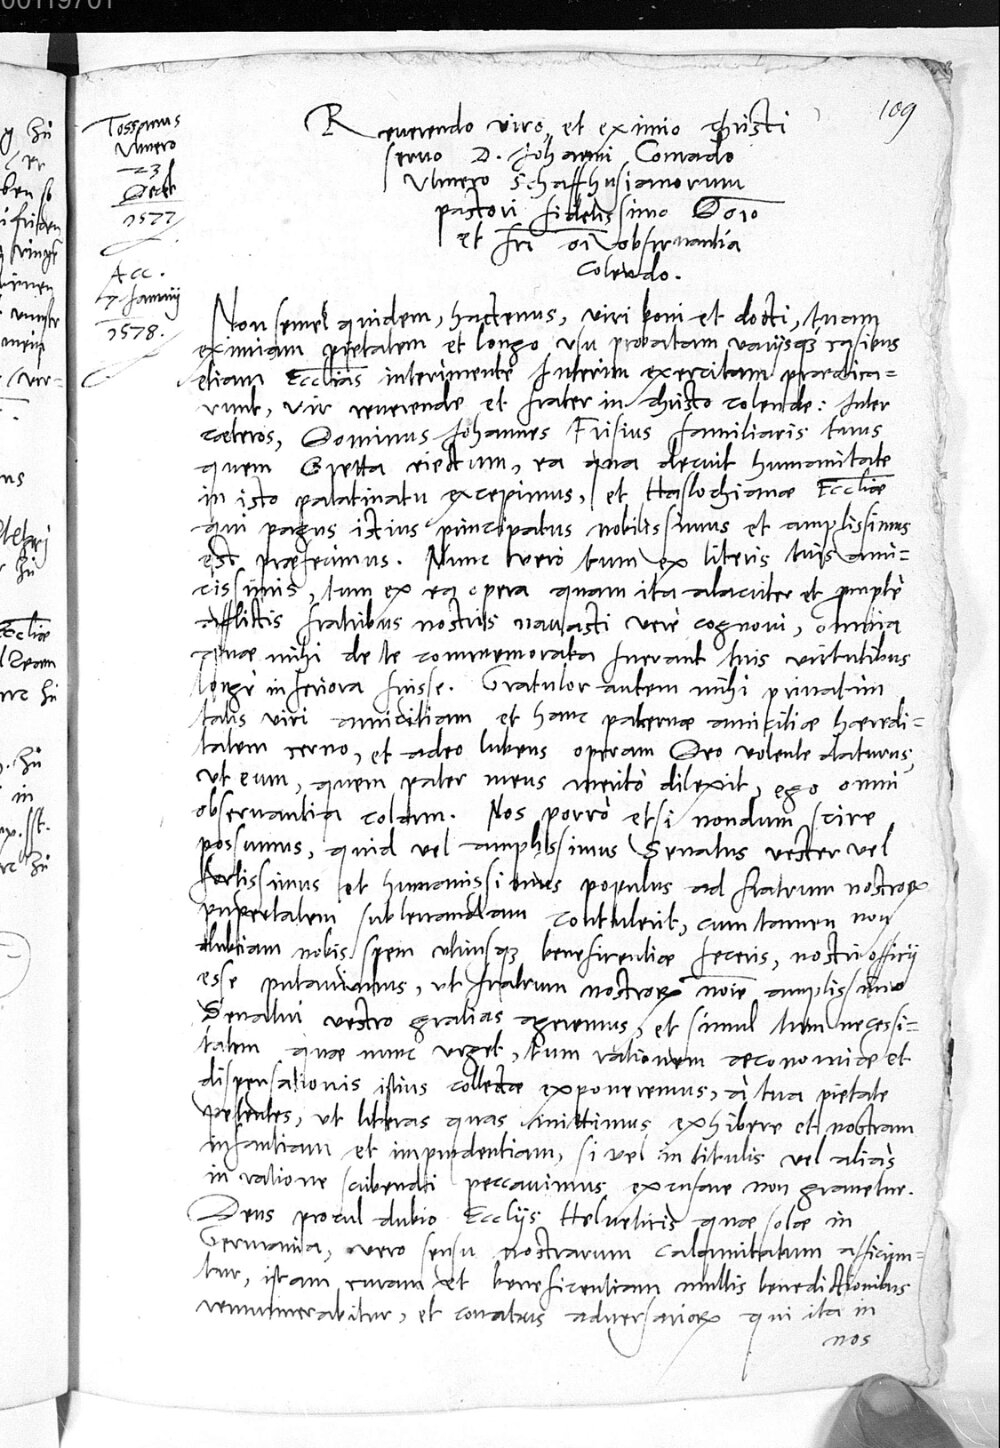 109
Tossanus
Ulmero
23
Decb
1577
Acc.
7 Januarij
1578.
Reverendo viro, et eximio Christi
servo D. Johanni Conrado
Ulmero Schaffhusianorum
pastori fidelissimo Dōīo
et frī oī observantia
colendo.
Non semel quidem, hactenus, viri boni et docti, tuam
eximiam pietatem et longo usu probatam varijsq; casibus
etiam Eccliās interimente interim exercitam praedica-
runt, vir reverende et frater in Christo colende: Inter
caeteros, Dominus Johannes Frisius familiaris tuus
quem Gretta eiectum, ea qua decuit humanitate
in isto palatinatu excepimus, et Haslochianae Eccliae
qui pagus istius principatus nobilissimus et amplissimus
est praefecimus. Nunc vero tum ex literis tuis ami-
cissimis, tum ex ea opera quam ita alacriter et prompte
afflictis fratribus nostris navasti vere cognovi, omnia
quae mihi de te commemorata fuerant tuis virtutibus
longe inferiora fuisse. Gratulor autem mihi privatim
talis viri amicitiam et hanc paternae amicitiae haeredi-
tatem cerno, et adeo lubens operam Deo volente daturus,
ut eum, quem pater meus merito dilexit, ego omni
observantia colam. Nos porrò etsi nondum scire
possumus, quid vel amplissimus Senatus vester vel
fortissimus et humanissimus populus ad fratrum nostror̃
paupertatem sublevandam contulerit, cum tamen non
dubiam nobis spem utriusq; beneficentiae feceris, nostri officij
esse putavimus, ut fratrum nostror̃ noīe amplissimo
Senatui vestro gratias ageremus, et simul tum necessi-
tatem quae nunc urget, tum rationem aeconomiae et
dispensationis istius collectae exponeremus, à tua pietate
petentes, ut literas quas mittimus exhibere et nostram
infantiam et imprudentiam, si vel in titulis vel alias
in ratione scribendi peccavimus excusare non gravetur.
Deus procul dubio Ecclijs Helveticis quae solae in
Germania, vero sensu nostrarum calamitatum afficiun-
tur, istam curam et beneficentiam multis benedictionibus
remunerabitur, et conatus adversarior̃ qui ita in
nos